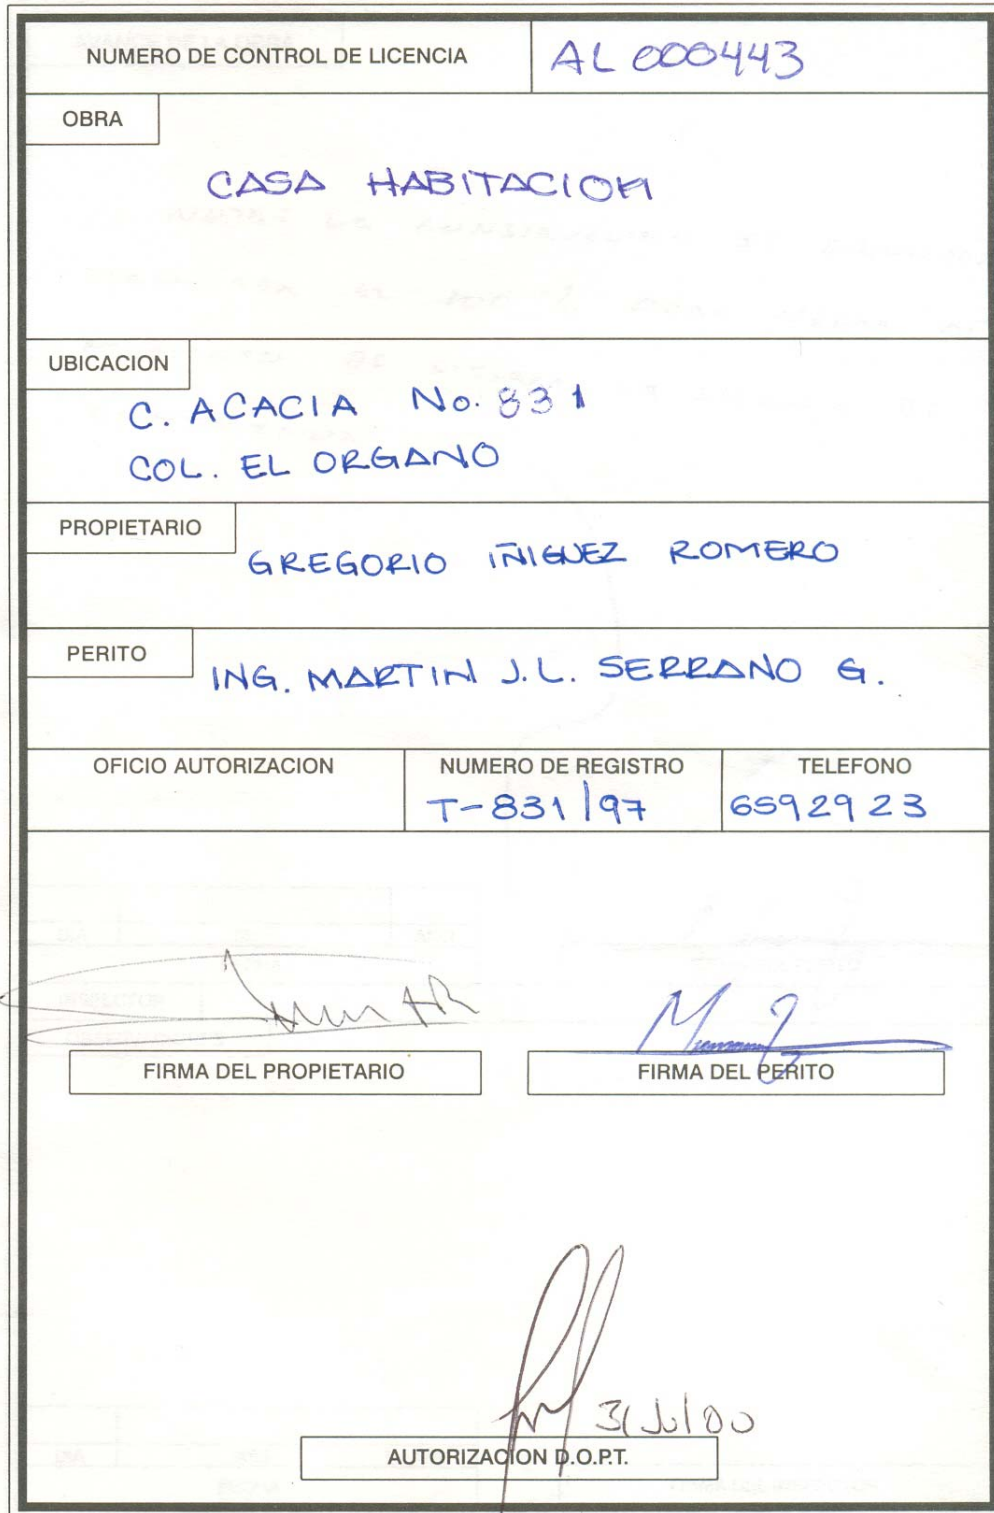 NUMERO DE CONTROL DE LICENCIA AL 000443
OBRA
CASA HABITACION
UBICACION
C. ACACIA No. 831
COL. EL ORGANO
PROPIETARIO
GREGORIO IÑIGUEZ ROMERO
PERITO
ING. MARTIN J.L. SERRANO G.
OFICIO AUTORIZACION NUMERO DE REGISTRO TELEFONO
T-831/97 6592923
FIRMA DEL PROPIETARIO FIRMA DEL PERITO
31/Jul/00
AUTORIZACION D.O.P.T.